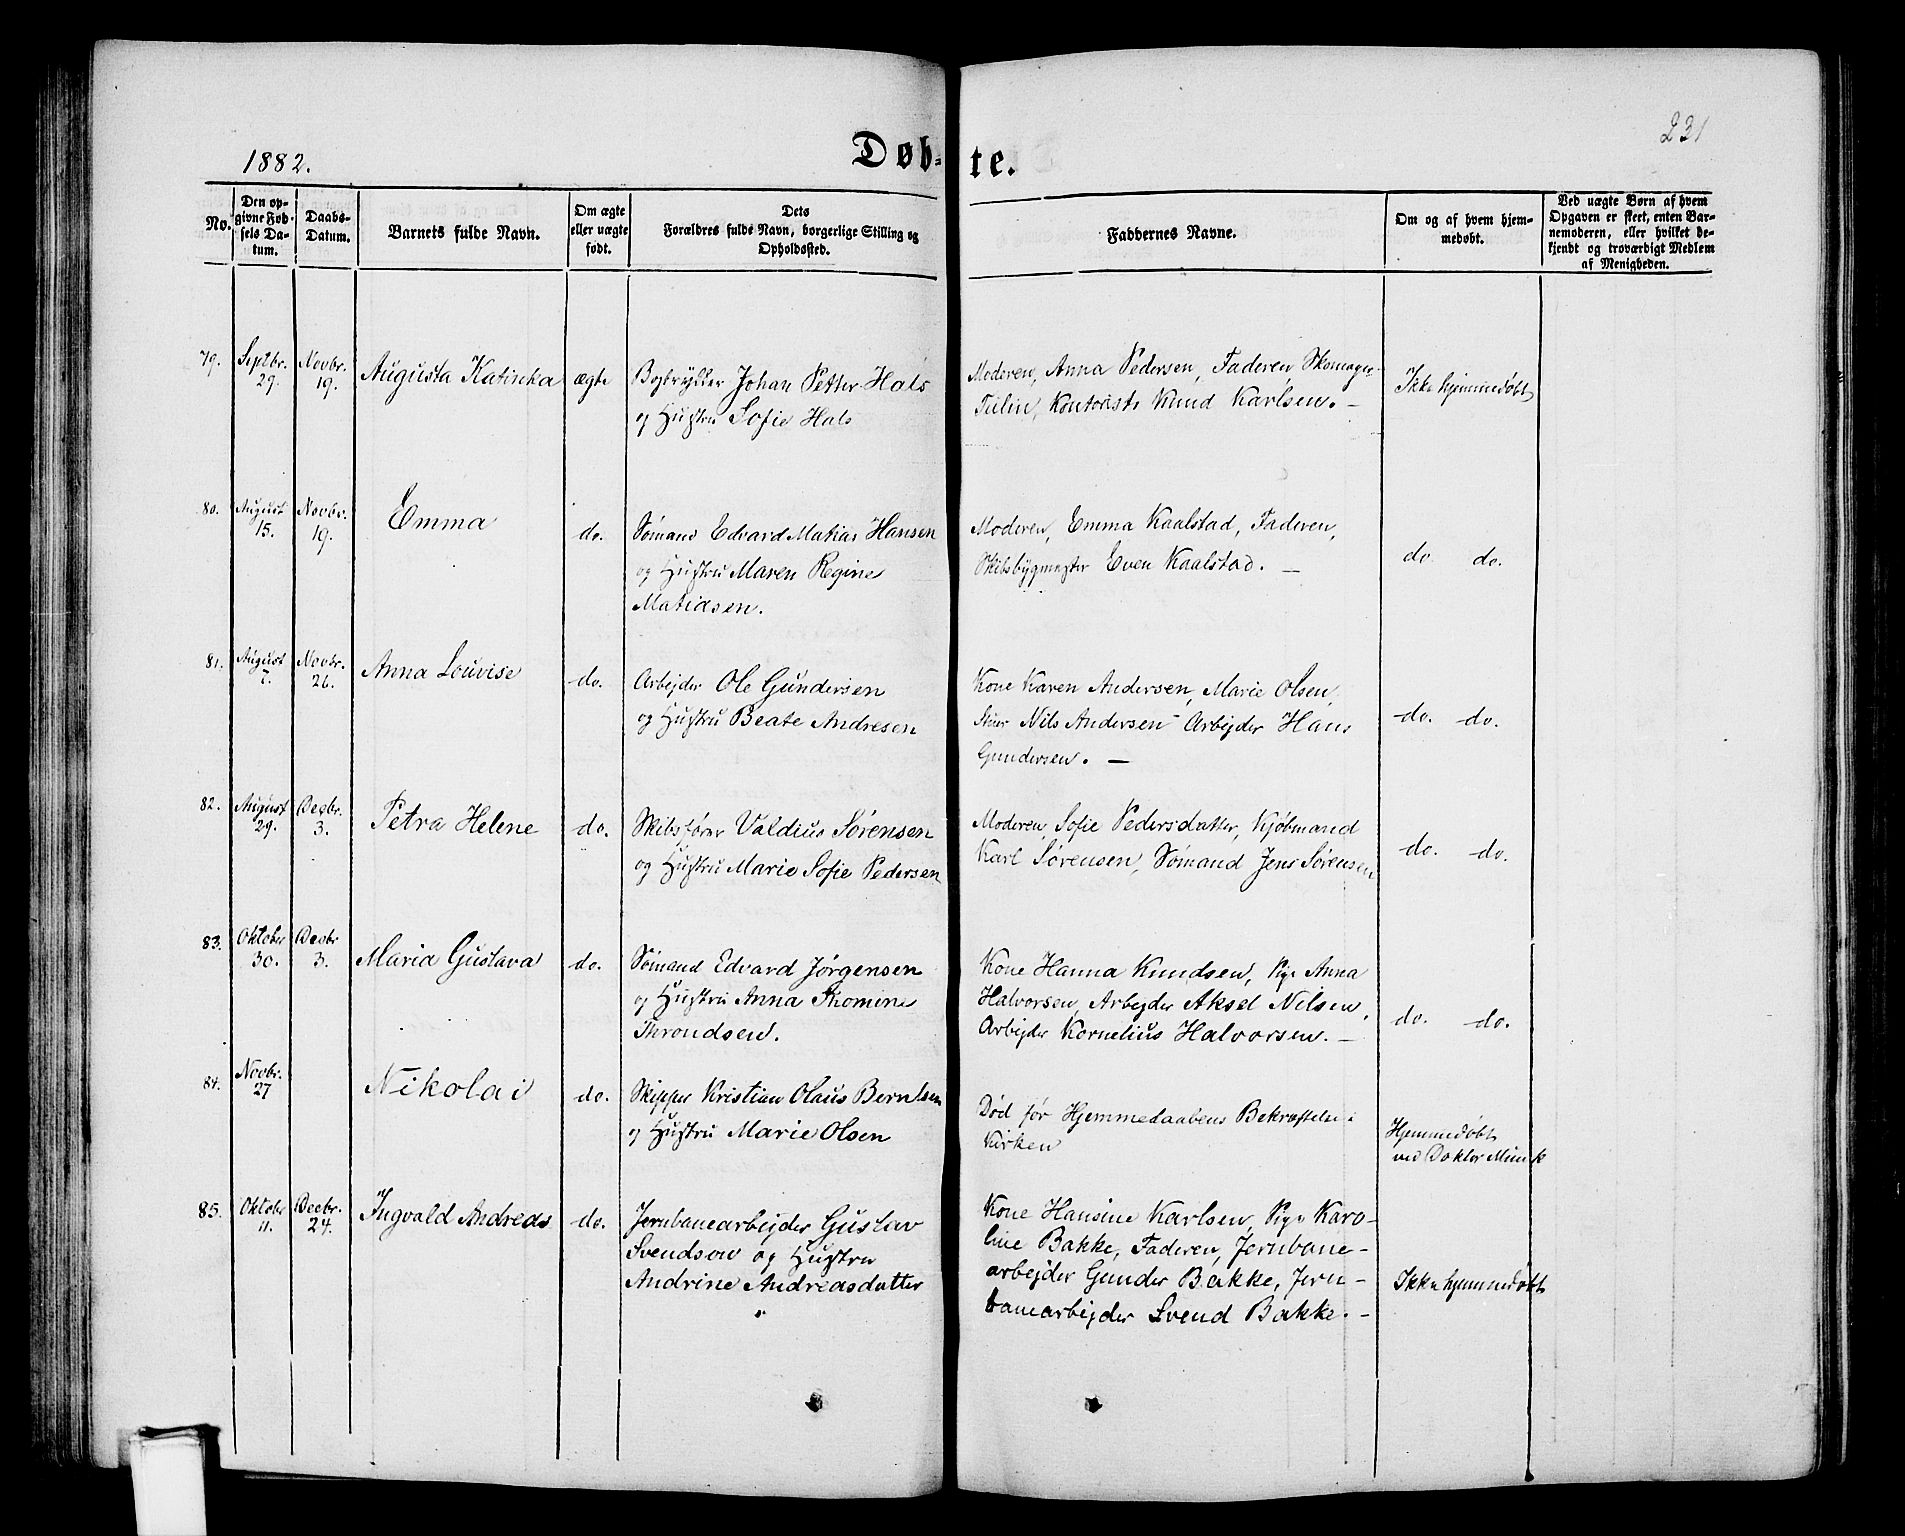 231
1882.
Døb-
te.
No.
Den op-
givne Fød-
sels Da-
tum.
Daabs-
Datum.
Barnets fulde Navn.
Om ægte
eller uægte
født.
Dets
Forældres fulde Navn, borgerlige Stilling og
Opholdssted.
Faddernes Navne.
Om og af hvem hjem-
medøbt.
Ved uægte Børn af hvem
Opgaven er skeet, enten Bar-
nemoderen, eller hvilket be-
kjendt og troværdigt Medlem
af Menigheden.
79.
Septbr.
29.
Novbr.
19.
Augusta Katinka
ægte
Bogtrykker Johan Petter Hals
og Hustru Sofie Hals
Moderen, Anna Pedersen, Faderen, Skomager
Tulin, Kontorist Knud Karlsen. —
Ikke hjemmedøbt
80.
August
15.
Novbr.
19.
Emma
do.
Sømand Edvard Matias Hansen
og Hustru Maren Regine
Matidsen.
Moderen, Emma Kaalstad, Faderen,
Skibsbygmester Even Kaalstad. —
do. do.
81.
August
7.
Novbr.
26.
Anna Louvise
do.
Arbejder Ole Gundersen
og Hustru Beate Andresen
Kone Karen Andersen, Marie Olsen,
Nils Andersen Arbejder Hans
Gundersen. —
do. do.
82.
August
29.
Decbr.
3.
Petra Helene
do.
Skibsfører Valdius Sørensen
og Hustru Marie Sofie Pedersen
Moderen, Sofie Pedersdatter, Kjøbmand
Karl Sørensen, Sømand Jens Sørensen
do. do.
83.
Oktober
30.
Decbr
3.
Maria Gustava
do.
Sømand Edvard Jørgensen
og Hustru Anna Thomine
Throndsen.
Kone Hanna Knudsen, Pige Anna
Halvorsen, Arbejder Aksel Nilsen,
Arbejder Kornelius Halvorsen. —
do. do.
84.
Novbr.
27
Nikolai
do.
Skipper Kristian Olaus Berntsen
og Hustru Marie Olsen
Død før Hjemmedaabens Bekræftelse i
Kirken
Hjemmedøbt
ved Doktor Munk
85.
Oktober
11.
Decbr.
24.
Ingvald Andreas
do.
Jernbanearbejder Gustav
Svendsen og Hustru
Andrine Andreasdatter
Kone Hansine Karlsen, Pige Karo-
line Bakke, Faderen, Jernbane-
arbejder Gunder Bakke, Jern-
banearbejder Svend Bakke. —
Ikke hjemmedøbt